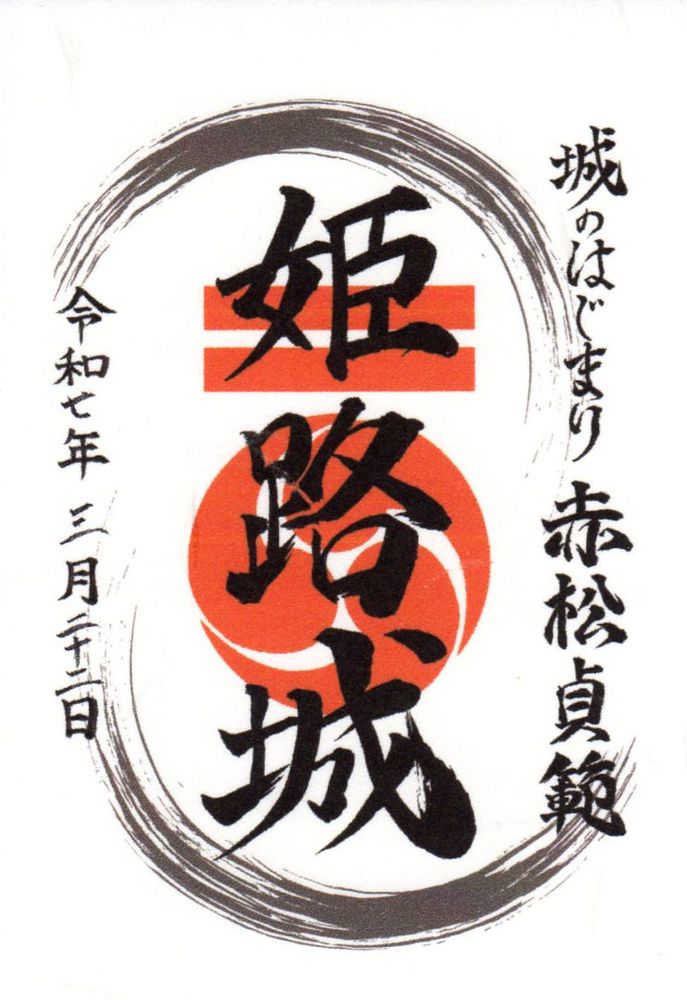 城のはじまり 赤松貞範
姫路城
令和七年 三月二十二日